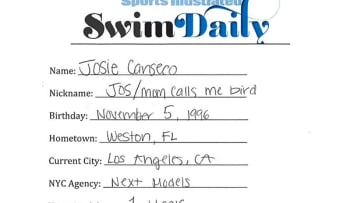 Sports Illustrated
SwimDaily
Name: Josie Canseco
Nickname: JOS/mom calls me bird
Birthday: November 5, 1996
Hometown: Weston, FL
Current City: Los Angeles, CA
NYC Agency: Next Models